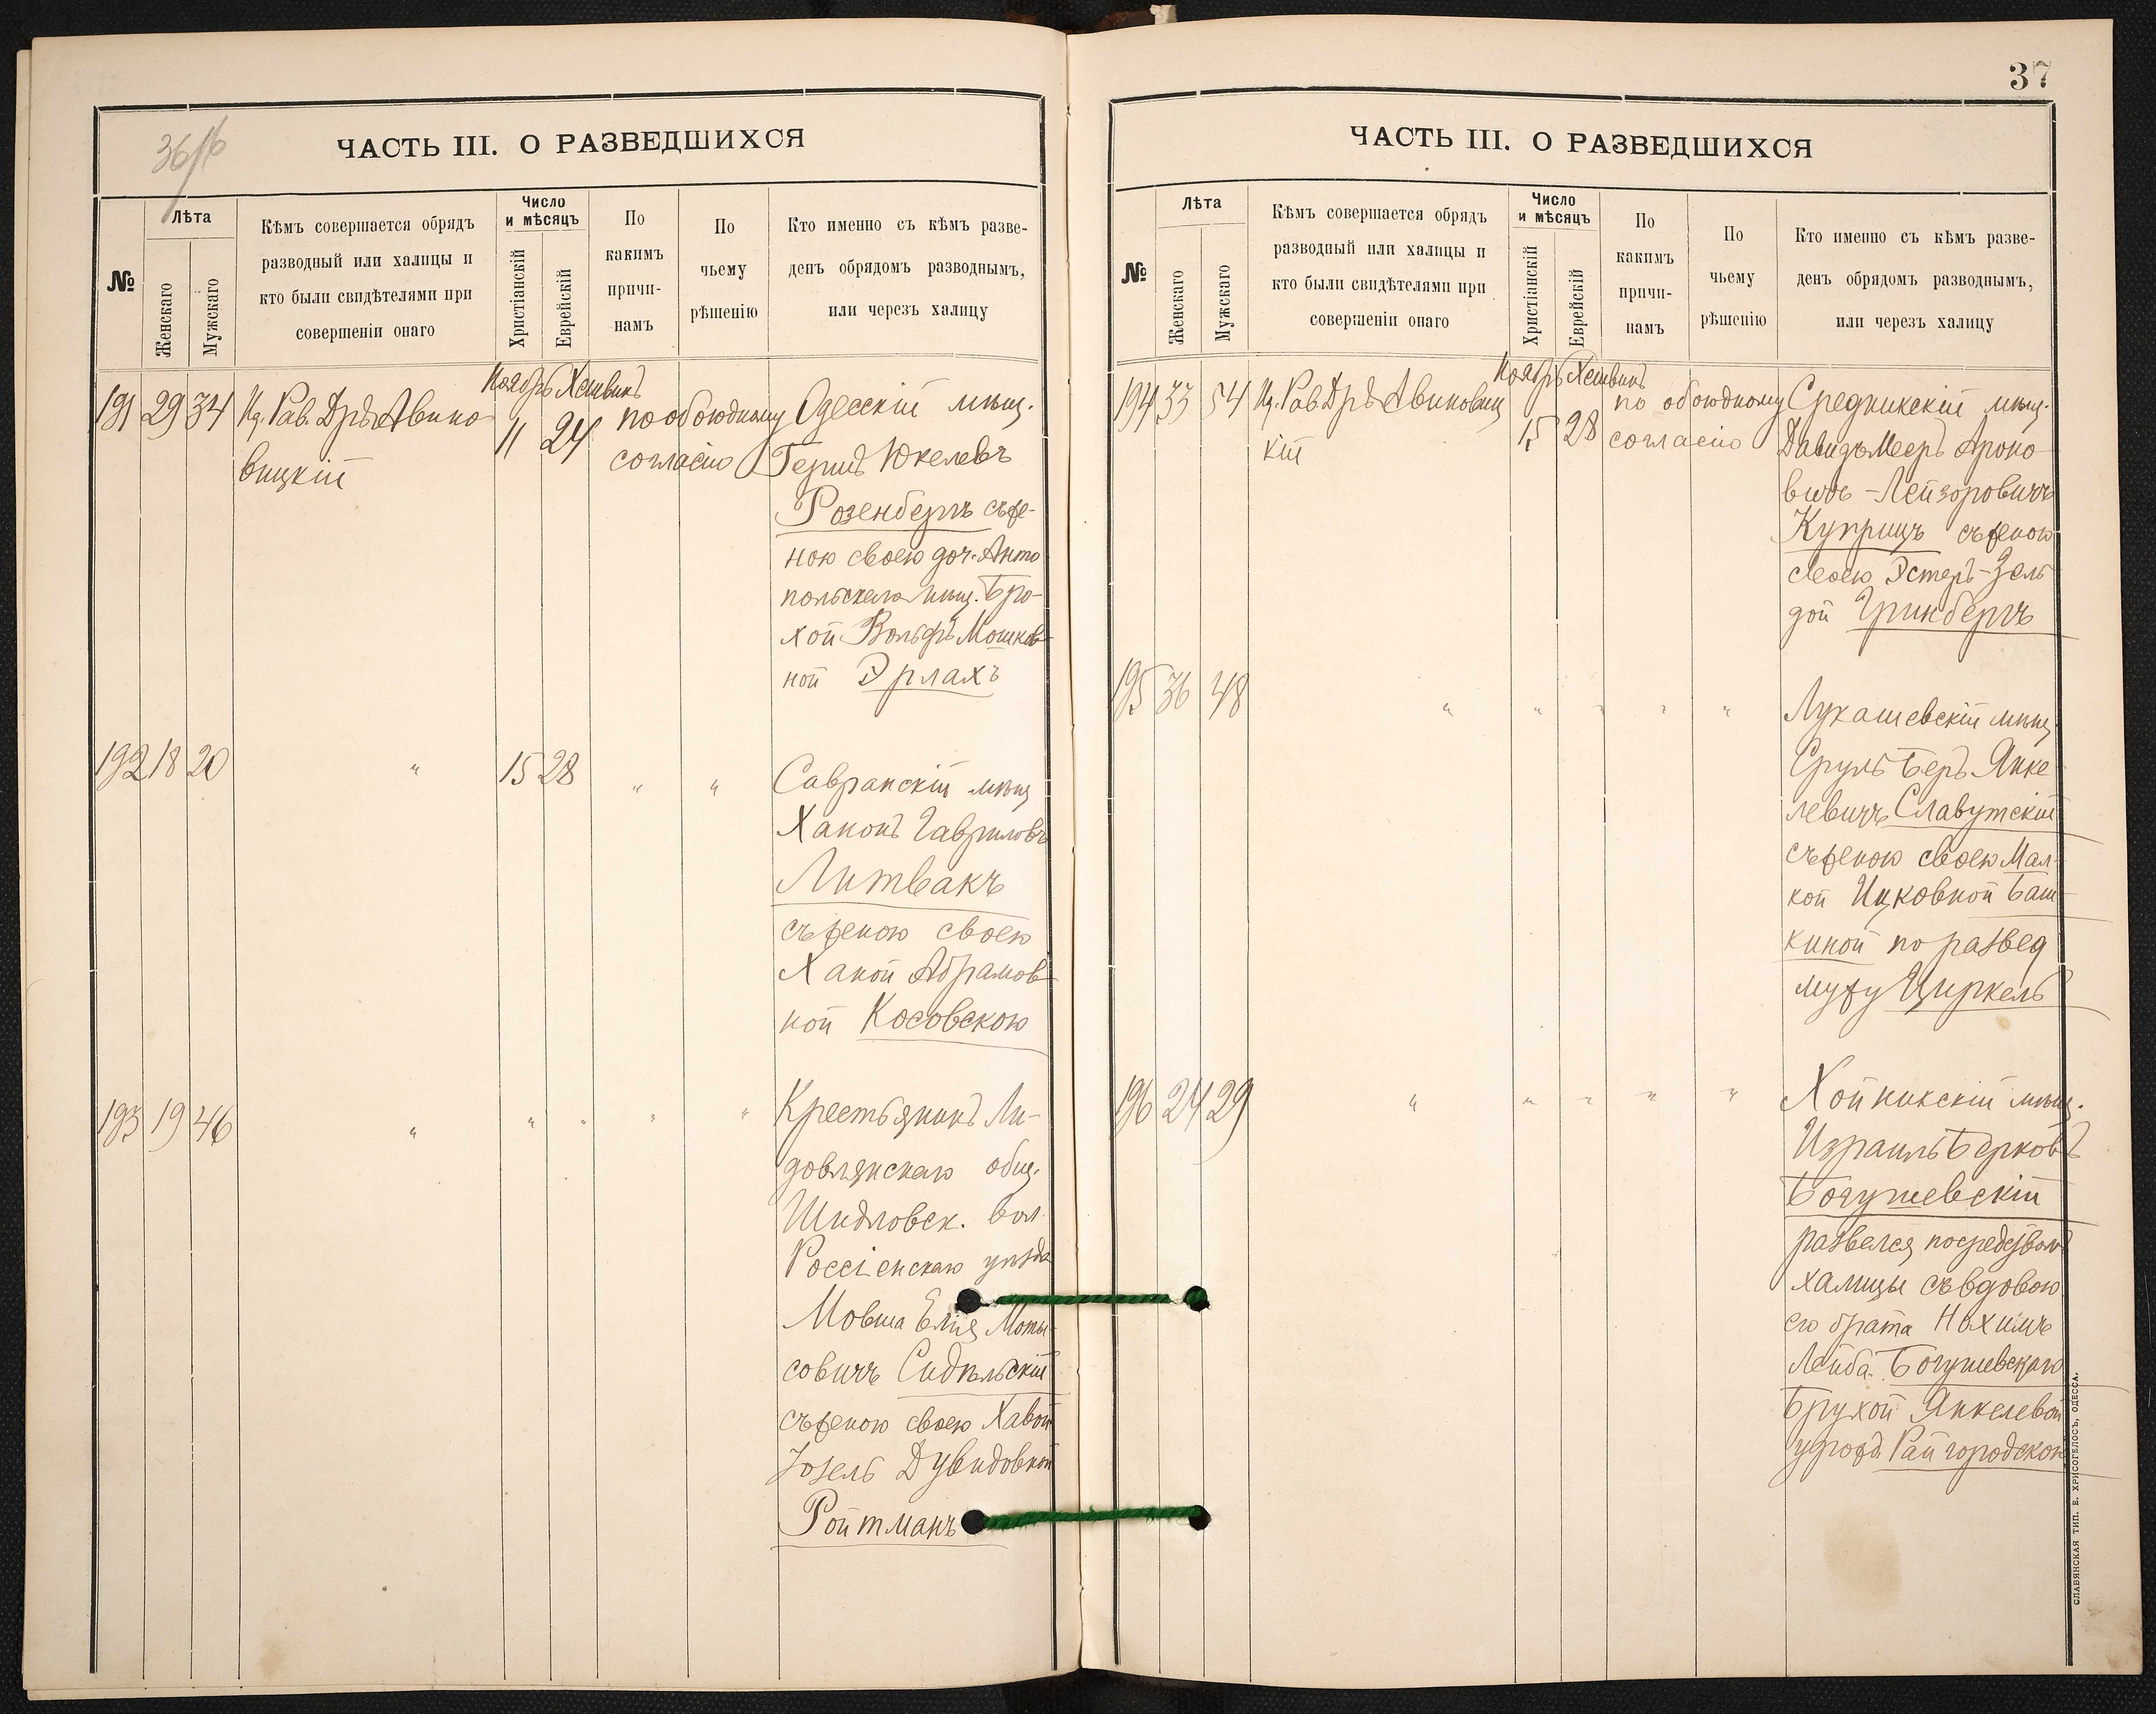 36/б
ЧАСТЬ III. О РАЗВЕДШИХСЯ
№
Лѣта
Женскаго
Мужскаго
Кѣмъ совершается обрядъ
разводный или халицы и
кто были свидѣтелями при
совершеніи онаго
Число
и мѣсяцъ
Христіанскій
Еврейскій
По
какимъ
причи-
намъ
По
чьему
рѣшенію
Кто именно съ кѣмъ разве-
денъ обрядомъ разводнымъ,
или черезъ халицу
Ноябрь Хешвинъ
191 29 34 Иц. Рав. Дръ Авино-
вицкій
11 24 по обоюдному
согласію
Одесскій мѣщ.
Гершъ Юкелевъ
Розенбергъ съ же-
ною своею доч. Анто
польскаго мѣщ. Бро-
хой Вольфъ Мошков-
ной Эрлахъ
192 18 20 " 15 28 " "
Савранскій мѣщ
Ханонъ Гавриловъ
Литвакъ
съ женою своею
Ханой Абрамов-
ной Косовскою
193 19 46 " " " " "
Крестьянинъ Ли-
довлянскаго общ.
Шидловск. вол.
Россіенскаго уѣзда
Мовша Елія Моты-
совичъ Сидѣльскій
съ женою своею Хавой
Зозель Дувидовной
Ройтманъ
37
ЧАСТЬ III. О РАЗВЕДШИХСЯ
№
Лѣта
Женскаго
Мужскаго
Кѣмъ совершается обрядъ
разводный или халицы и
кто были свидѣтелями при
совершеніи онаго
Число
и мѣсяцъ
Христіанскій
Еврейскій
По
какимъ
причи-
намъ
По
чьему
рѣшенію
Кто именно съ кѣмъ разве-
денъ обрядомъ разводнымъ,
или черезъ халицу
Ноябрь Хешвинъ
194 33 54 Иц. Рав Дръ Авиновиц
кій
15 28 по обоюдному
согласію
Средникскій мѣщ.
Давидъ Мееръ Ароно-
вичъ-Лейзоровичъ
Куприцъ съ женою
своею Эстеръ-Зель
дой Гринбергъ
195 36 48 " " " " "
Лукашевскій мѣщ
Сруль Беръ Янке
левичъ Славутскій
съ женою своею Мал-
кой Ицковной Баш-
киной по развед
мужу Циркель
196 24 29 " " " " "
Хойникскій мѣщ.
Израиль Берковъ
Богушевскій
развелся посредствомъ
халицы съ вдовою
его брата Нахимъ
Лейба Богушевскаго
Брухой Янкелевой
урожд. Райгородскою
СЛАВЯНСКАЯ ТИП. Е. ХРИСОГЕЛОСЪ, ОДЕССА.